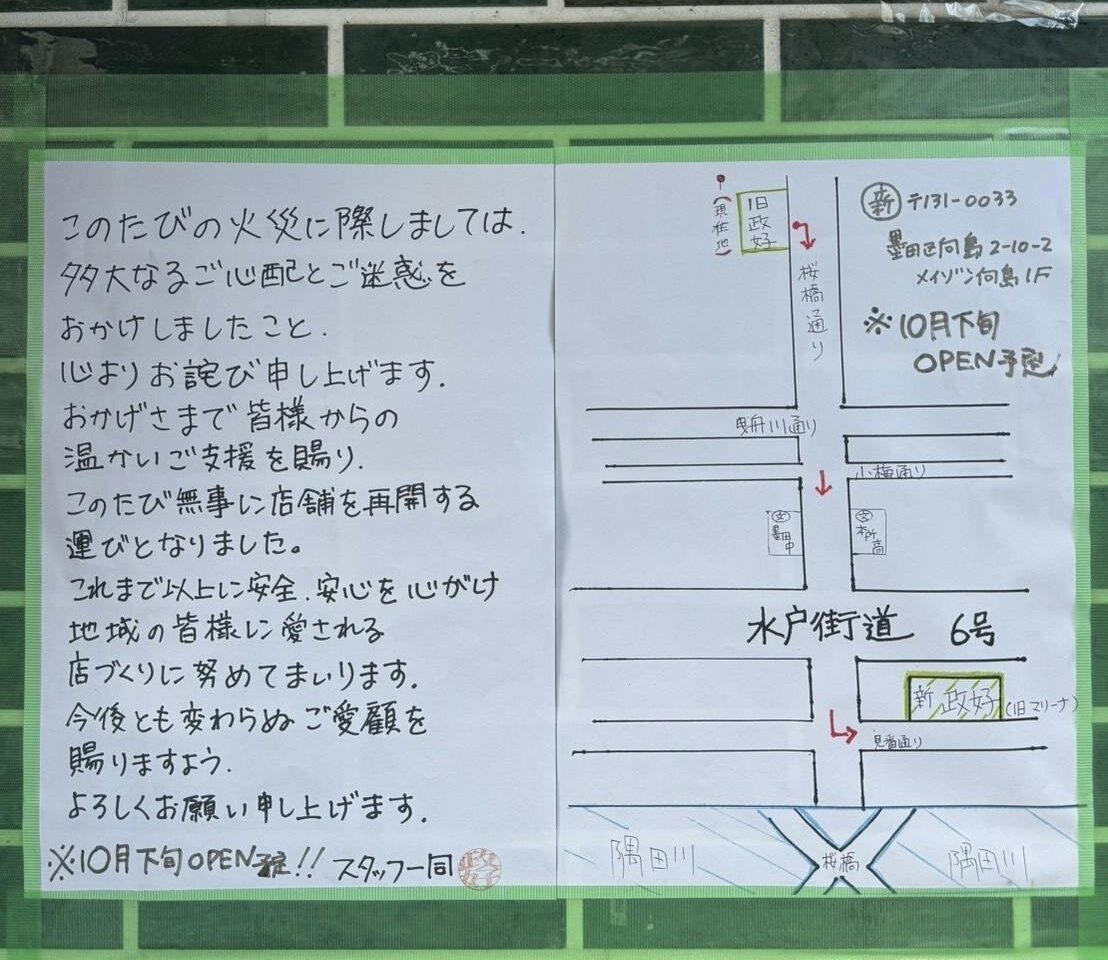 このたびの火災に際しましては、
多大なるご心配とご迷惑を
おかけしましたこと、
心よりお詫び申し上げます。
おかげさまで皆様からの
温かいご支援を賜り、
このたび無事に店舗を再開する
運びとなりました。
これまで以上に安全、安心を心がけ
地域の皆様に愛される
店づくりに努めてまいります。
今後とも変わらぬご愛顧を
賜りますよう、
よろしくお願い申し上げます。
※10月下旬OPEN予定!! スタッフ一同
政好
(現在地)
旧政好
桜橋通り
新 〒131-0033
墨田区向島2-10-2
メイゾン向島1F
※10月下旬
OPEN予定
曳舟川通り
小梅通り
文 墨田中
文 本所高
水戸街道 6号
新政好 (旧マリーナ)
見番通り
隅田川
桜橋
隅田川